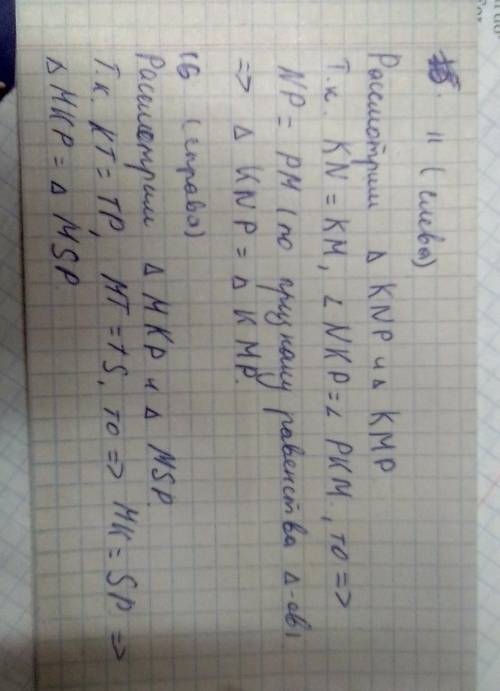 11 (слева)
Рассмотрим Δ KNP и Δ KMP
Т.к. KN = KM, ∠ NKP = ∠ PKM, то =>
NP = PM (по признаку равенства Δ-ов)
=> Δ KNP = Δ KMP.
16 (справа)
Рассмотрим Δ MKP и Δ MSP.
Т.к. KT = TP, MT = TS, то => MK = SP =>
Δ MKP = Δ MSP